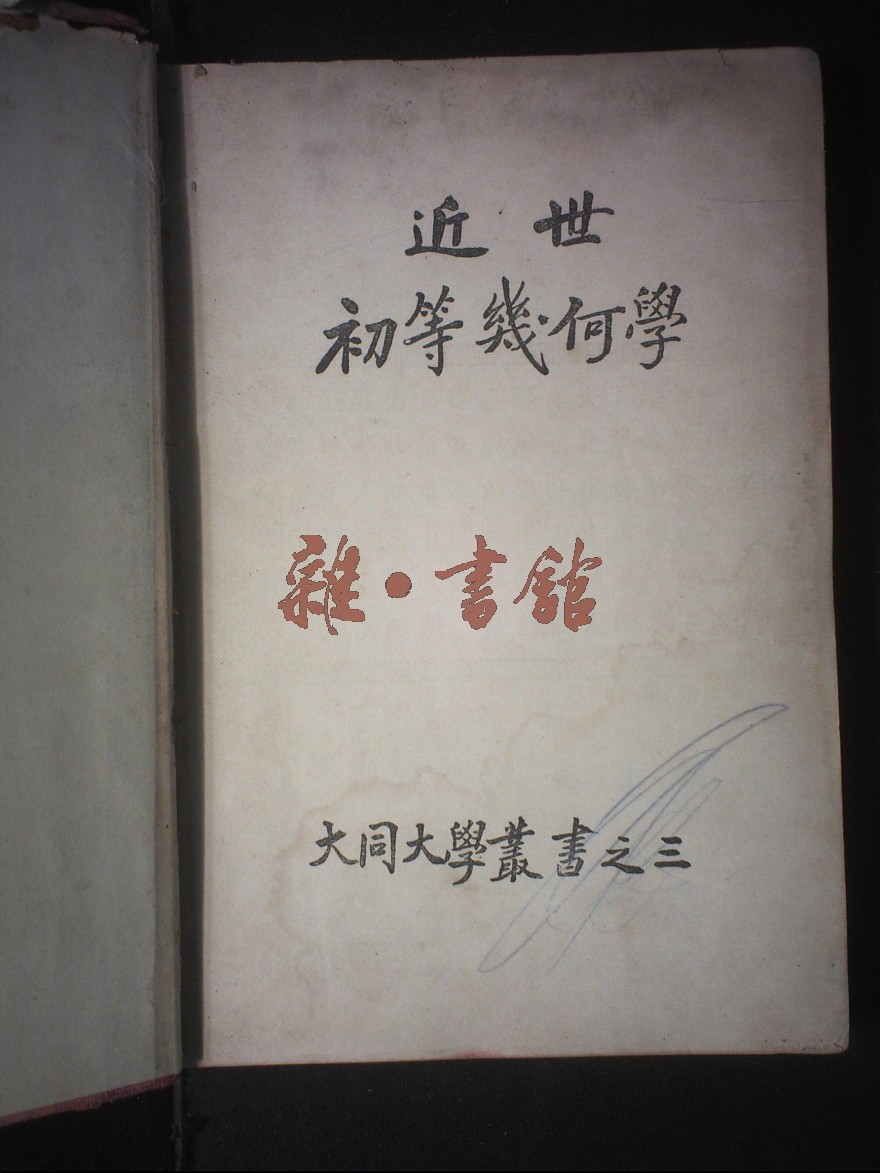 近世
初等幾何學
雜·書館
大同大學叢書之三